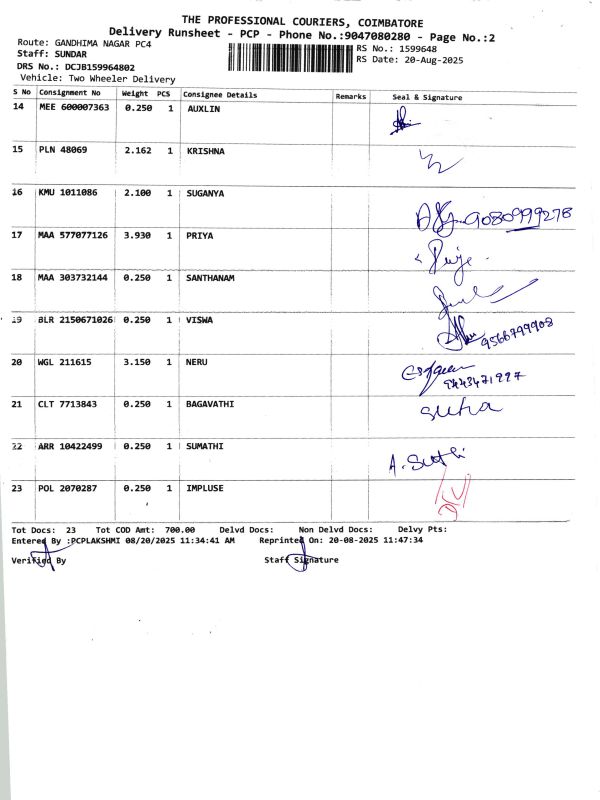 THE PROFESSIONAL COURIERS, COIMBATORE
Delivery Runsheet - PCP - Phone No.:9047080280 - Page No.:2
Route: GANDHIMA NAGAR PC4
RS No.: 1599648
Staff: SUNDAR
RS Date: 20-Aug-2025
DRS No.: DCJB159964802
Vehicle: Two Wheeler Delivery
S No Consignment No Weight PCS Consignee Details Remarks Seal & Signature
14 MEE 600007363 0.250 1 AUXLIN
15 PLN 48069 2.162 1 KRISHNA
16 KMU 1011086 2.100 1 SUGANYA
9080999278
17 MAA 577077126 3.930 1 PRIYA
18 MAA 303732144 0.250 1 SANTHANAM
19 BLR 2150671026 0.250 1 VISWA
9566799908
20 WGL 211615 3.150 1 NERU
9443471997
21 CLT 7713843 0.250 1 BAGAVATHI
suha
22 ARR 10422499 0.250 1 SUMATHI
23 POL 2070287 0.250 1 IMPLUSE
Tot Docs: 23 Tot COD Amt: 700.00 Delvd Docs: Non Delvd Docs: Delvy Pts:
Entered By :PCPLAKSHMI 08/20/2025 11:34:41 AM Reprinted On: 20-08-2025 11:47:34
Verified By Staff Signature